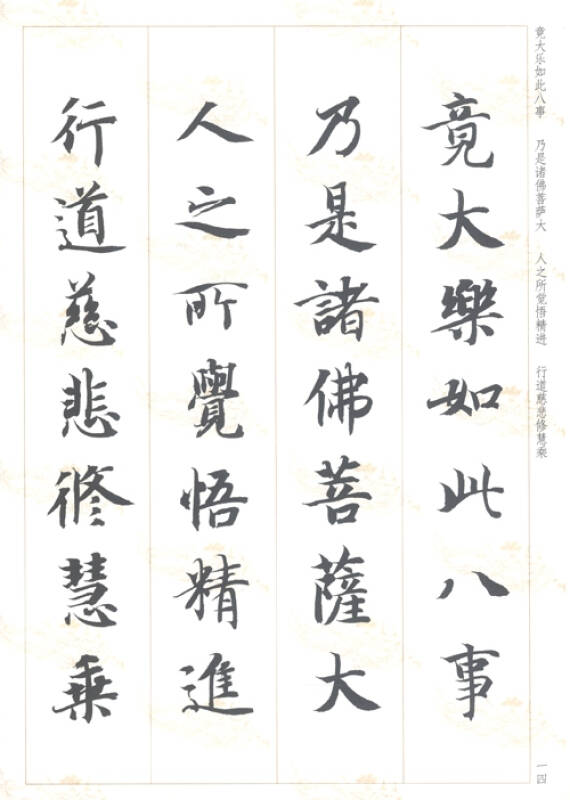 竟大乐如此八事 乃是诸佛菩萨大 人之所觉悟精进 行道慈悲修慧乘
竟大樂如此八事
乃是諸佛菩薩大
人之所覺悟精進
行道慈悲修慧乘
一四